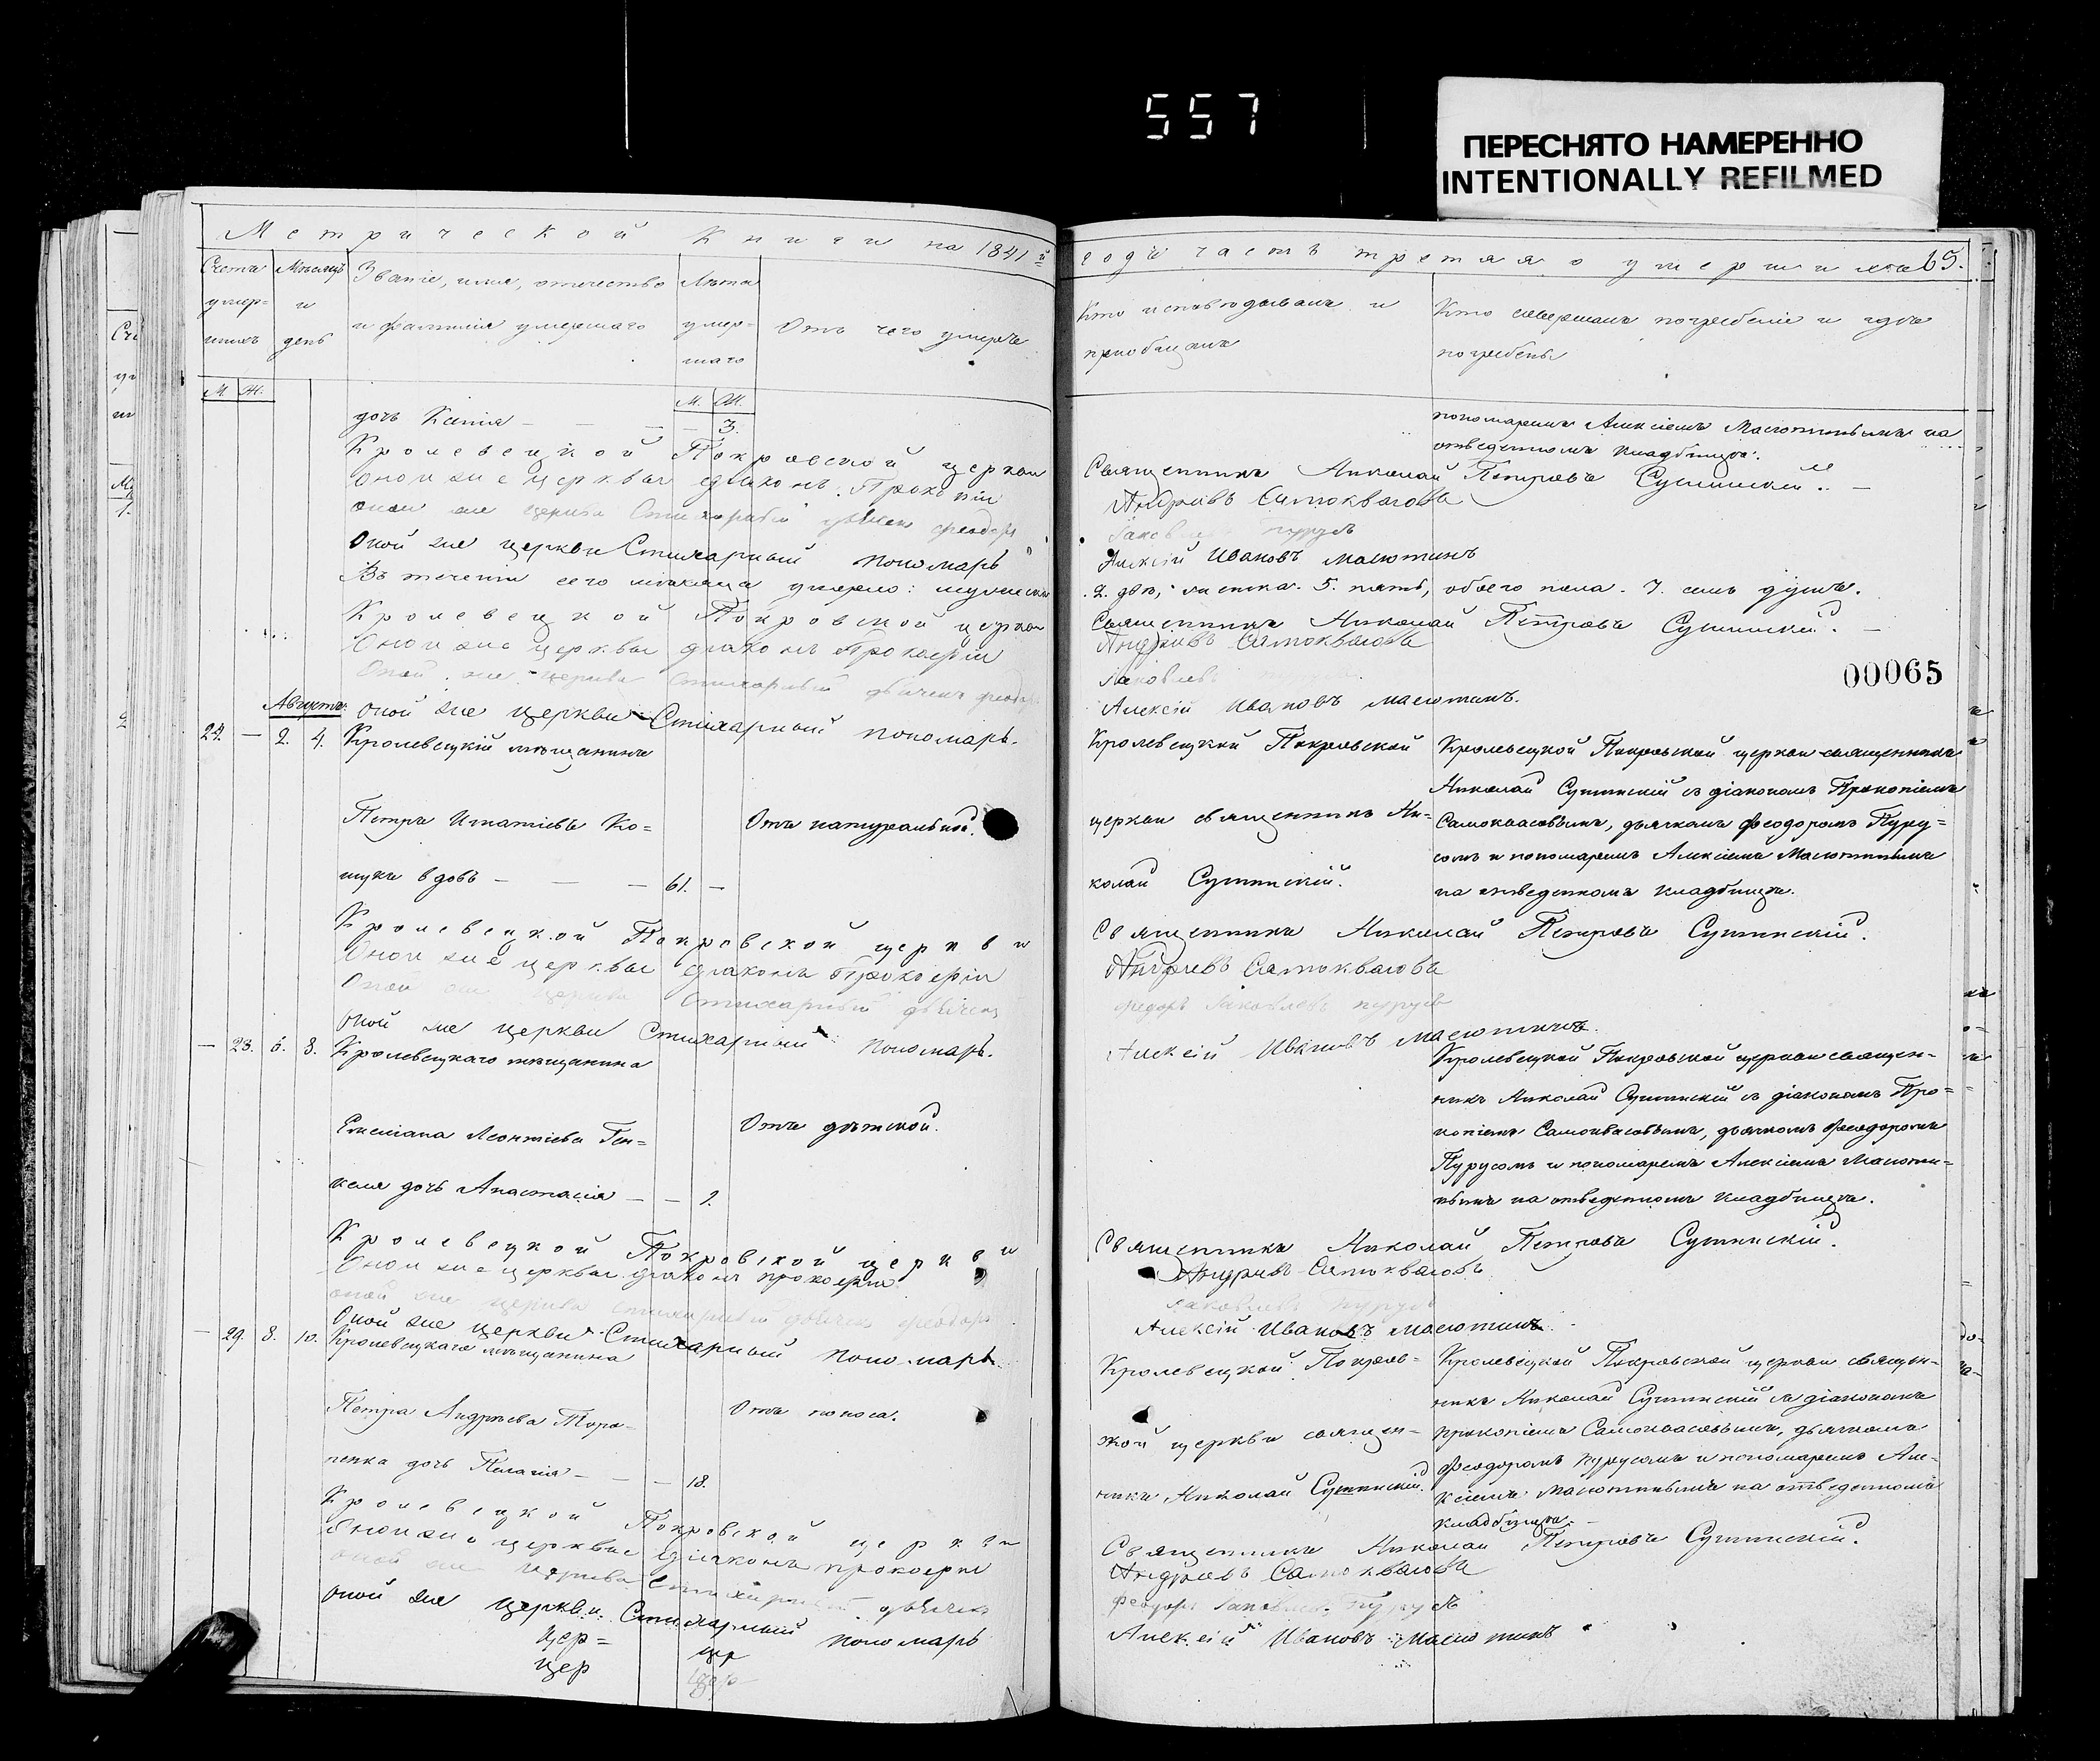 557
ПЕРЕСНЯТО НАМЕРЕННО
INTENTIONALLY REFILMED
Метрической Книги на 1841й
годъ часть третяя о умершихъ 65.
Счетъ умер- шихъ
Мѣсяцъ и день
Званіе, имя, отчество
и фамилія умершаго
Лѣта умер- шаго
Отъ чего умеръ
Кто исповѣдывалъ и
приобщалъ
Кто совершалъ погребеніе и гдѣ
погребены
М. Ж.
М. Ж.
дочь Ксенія — — — 3.
пономаремъ Алексіемъ Масютинымъ на
отведенномъ кладбищѣ.
Кролевецкой Покровской церкви
Священникъ Николай Петровъ Сушинскій. —
Оной же церквы діаконъ Прокопій
Андріевъ Самоквасовъ
оной же церкви Стихарный дьячекъ Феодоръ
Яковлевъ Пурусъ
Оной же церкви Стихарный пономарь
Алексій Ивановъ Масютинъ
Въ теченіи сего мѣсяца умерло: мужеска
2. двѣ, женска. 5. пять, обоего пола. 7. семь душъ.
Кролевецкой Покровской церкви
Священникъ Николай Петровъ Сушинскій. —
Оной же церквы діаконъ Прокопій
Андріевъ Самоквасовъ
Оной же церкви Стихарный дьячекъ Феодоръ
Яковлевъ
00065
Августъ.
оной же церкви Стихарный пономарь.
Алексій Ивановъ Масютинъ.
24. — 2. 4. Кролевецкій мѣщанинъ
Петръ Игнатіевъ Ко=
шукъ вдовъ — — — 61. —
Отъ натуральной.
Кролевецкой Покровской
церкви священникъ Ни-
колай Сушинскій.
Кролевецкой Покровской церкви священникъ
Николай Сушинскій съ діакономъ Прокопіемъ
Самоквасовымъ, дьячкомъ Феодоромъ Пуру=
сомъ и пономаремъ Алексіемъ Масютинымъ
на отведенномъ кладбищѣ.
Кролевецкой Покровской церкви
Священникъ Николай Петровъ Сушинскій.
Оной же церквы діаконъ Прокопій
Андріевъ Самоквасовъ
Оной же церкви Стихарный дьячекъ
Федоръ Яковлевъ Пурусъ
Оной же церкви Стихарный пономарь.
Алексій Ивановъ Масютинъ.
— 28. 6. 8. Кролевецкаго мѣщанина
Емеліана Леонтіева Ген=
келя дочь Анастасія — — 2.
Отъ дѣтской.
Кролевецкой Покровской церкви священ-
никъ Николай Сушинскій съ діакономъ Про=
копіемъ Самоквасовымъ, дьячкомъ Феодоромъ
Пурусомъ и пономаремъ Алексіемъ Масюти-
нымъ на отведенномъ кладбищѣ.
Кролевецкой Покровской церкви
Священникъ Николай Петровъ Сушинскій.
Оной же церквы діаконъ Прокопій
Андріевъ Самоквасовъ
оной же церкви Стихарный дьячекъ Феодоръ
Яковлевъ Пурусъ
Оной же церкви Стихарный пономарь.
Алексій Ивановъ Масютинъ.
— 29. 8. 10. Кролевецкаго мѣщанина
Петра Андрѣева Торо-
пенка дочь Пелагія — — — 18.
Отъ поноса.
Кролевецкой Покров=
ской церкви священ-
никъ Николай Сушинскій.
Кролевецкой Покровской церкви священ-
никъ Николай Сушинскій съ діакономъ
Прокопіемъ Самоквасовымъ, дьячкомъ
Феодоромъ Пурусомъ и пономаремъ Але-
ксіемъ Масютинымъ на отведенномъ
кладбищѣ. —
Кролевецкой Покровской церкви
Священникъ Николай Петровъ Сушинскій.
Оной же церквы діаконъ Прокопій
Андріевъ Самоквасовъ
оной же церкви Стихарный дьячекъ
Феодоръ Яковлевъ Пурусъ
оной же церкви Стихарный пономарь
Алексій Ивановъ Масютинъ
цер= цер
цер цер